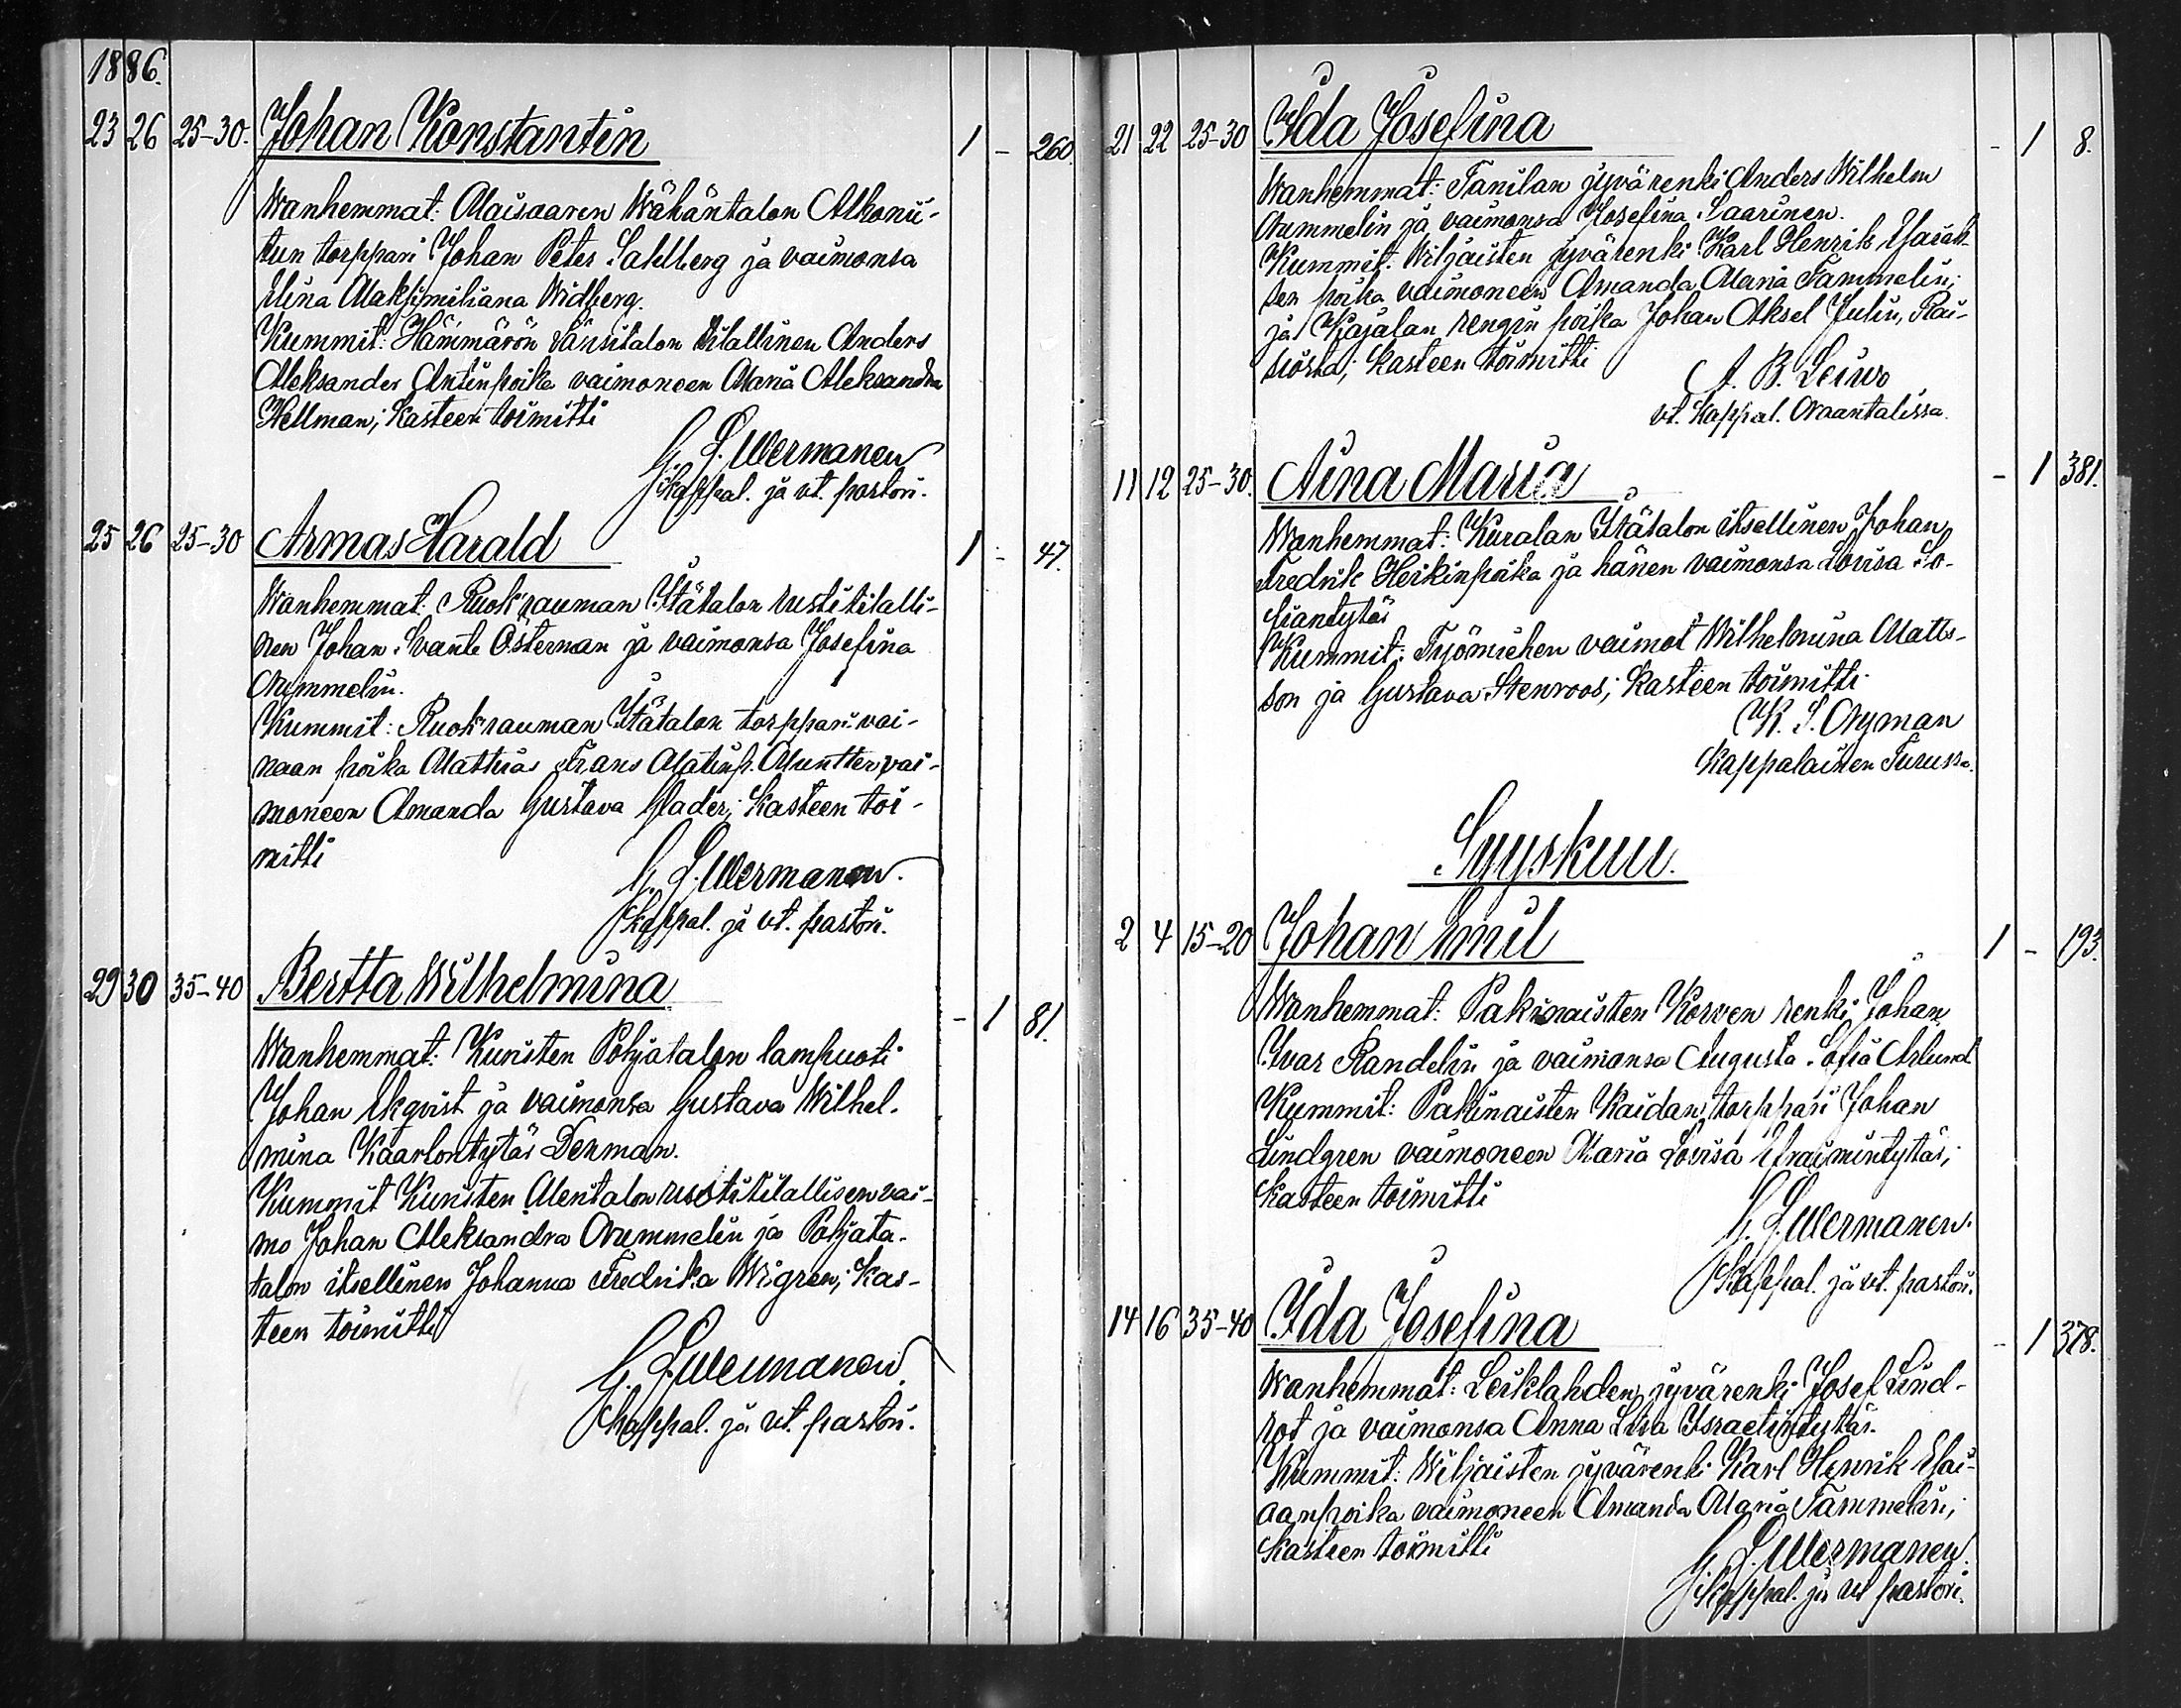 1886.
23 26 25-30. Johan Konstantin 1 - 260.
Wanhemmat: Maisaaren Wähäntalon Alhonii-
tun torppari Johan Peter Sahlberg ja vaimonsa
Elina Maksimiliana Widberg.
Kummit: Hämmärön Länsitalon tilallinen Anders
Aleksander Antinpoika vaimoneen Maria Aleksandra
Hellman; Kasteen toimitti
G. L. Wermanen
Kappal. ja vt. pastori.
25 26 25-30 Armas Harald 1 - 47.
Wanhemmat: Ruokrauman Itätalon rustitilalli-
nen Johan Svante Österman ja vaimonsa Josefina
Nummelin.
Kummit: Ruokrauman Itätalon torppari-vai-
naan poika Mattias Frans Matinp. Muntter vai-
moneen Amanda Gustava Glader; Kasteen toi-
mitti
G. L. Wermanen.
Kappal. ja vt. pastori.
29 30 35-40 Bertta Wilhelmina - 1 81.
Wanhemmat: Kunsten Pohjatalon lampuoti
Johan Ekqvist ja vaimonsa Gustava Wilhel-
mina Kaarlontytär Denman.
Kummit Kunsten Alentalon rustitilallisen vai-
mo Johan Aleksandra Nummelin ja Pohjata-
talon itsellinen Johanna Fredrika Wigren; Kas-
teen toimitti
G. L. Wermanen.
Kappal. ja vt. pastori.
21 22 25-30 Ida Josefina - 1 8.
Wanhemmat: Tanilan jyvärenki Anders Wilhelm
Nummelin ja vaimonsa Josefina Saarinen.
Kummit: Wiljaisten jyvärenki Karl Henrik Esaiak-
sen poika vaimoneen Amanda Maria Tammelin;
ja Kajalan rengin poika Johan Aksel Julin, Rai-
siosta; Kasteen toimitti
A. B. Leiwo
vt. Kappal. Naantalissa.
11 12 25-30. Aina Maria - 1 381.
Wanhemmat: Kuralan Itätalon itsellinen Johan
Fredrik Heikinpoika ja hänen vaimonsa Lovisa So-
fiantytär
Kummit: Työmiehen vaimot Wilhelmina Matts-
son ja Gustava Stenroos; Kasteen toimitti
K. S. Nyman
Kappalainen Turussa.
Syyskuu.
2 4 15-20 Johan Emil 1 - 193.
Wanhemmat: Pakinaisten Korven renki Johan
Ivar Randelin ja vaimonsa Augusta Sofia Aslund
Kummit: Pakinaisten Kaidan torppari Johan
Lindgren vaimoneen Maria Lovisa Efraimintytär;
Kasteen toimitti
G. L. Wermanen.
Kappal. ja vt. pastori.
14 16 35-40 Ida Josefina - 1 378.
Wanhemmat: Leiklahden jyvärenki Josef Lind-
rot ja vaimonsa Anna Lisa Israelintytär.
Kummit: Wiljaisten jyvärenki Karl Henrik Esai-
aanpoika vaimoneen Amanda Maria Tammelin;
Kasteen toimitti
G. L. Wermanen.
Kappal. ja vt pastori.